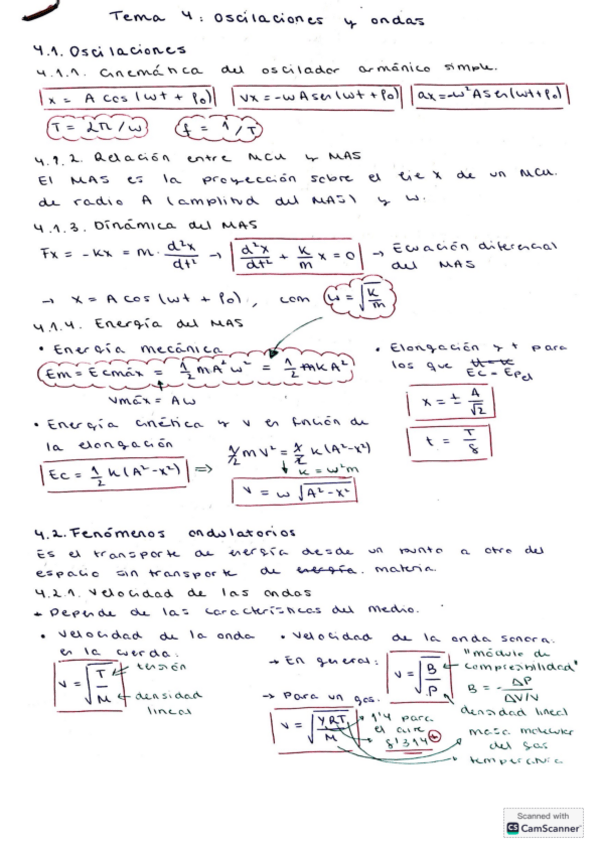 Tema 4: Oscilaciones y ondas
4.1. Oscilaciones
4.1.1. Cinemática del oscilador armónico simple.
x = A cos (ωt + φ₀) vx = -ωA sen (ωt + φ₀) ax = -ω² A sen (ωt + φ₀)
T = 2π/ω f = 1/T
4.1.2. Relación entre MCU y MAS
El MAS es la proyección sobre el eje x de un MCU.
de radio A (amplitud del MAS) y ω.
4.1.3. Dinámica del MAS
Fx = -kx = m · d²x/dt² → d²x/dt² + k/m x = 0 → Ecuación diferencial
del MAS
→ x = A cos (ωt + φ₀), con ω = √(k/m)
4.1.4. Energía del MAS
• Energía mecánica
Em = Ec máx = 1/2 m A² ω² = 1/2 k A²
vmáx = Aω
• Elongación y t para
los que Ec = Ep el
x = ± A/√2
t = T/8
• Energía cinética y v en función de
la elongación
Ec = 1/2 k (A² - x²) ⇒ 1/2 m v² = 1/2 k (A² - x²)
↓ k = ω² m
v = ω √(A² - x²)
4.2. Fenómenos ondulatorios
Es el transporte de energía desde un punto a otro del
espacio sin transporte de energía. materia.
4.2.1. Velocidad de las ondas
Depende de las características del medio.
• Velocidad de la onda
en la cuerda:
v = √(T/M)
← tensión
← densidad
lineal
• Velocidad de la onda sonora:
→ En general: v = √(B/ρ)
"módulo de
compresibilidad"
B = - ΔP/(ΔV/V)
densidad lineal
→ Para un gas:
v = √(γRT/M)
1'4 para
el aire
8'314
masa molecular
del gas
temperatura
Scanned with
CS CamScanner